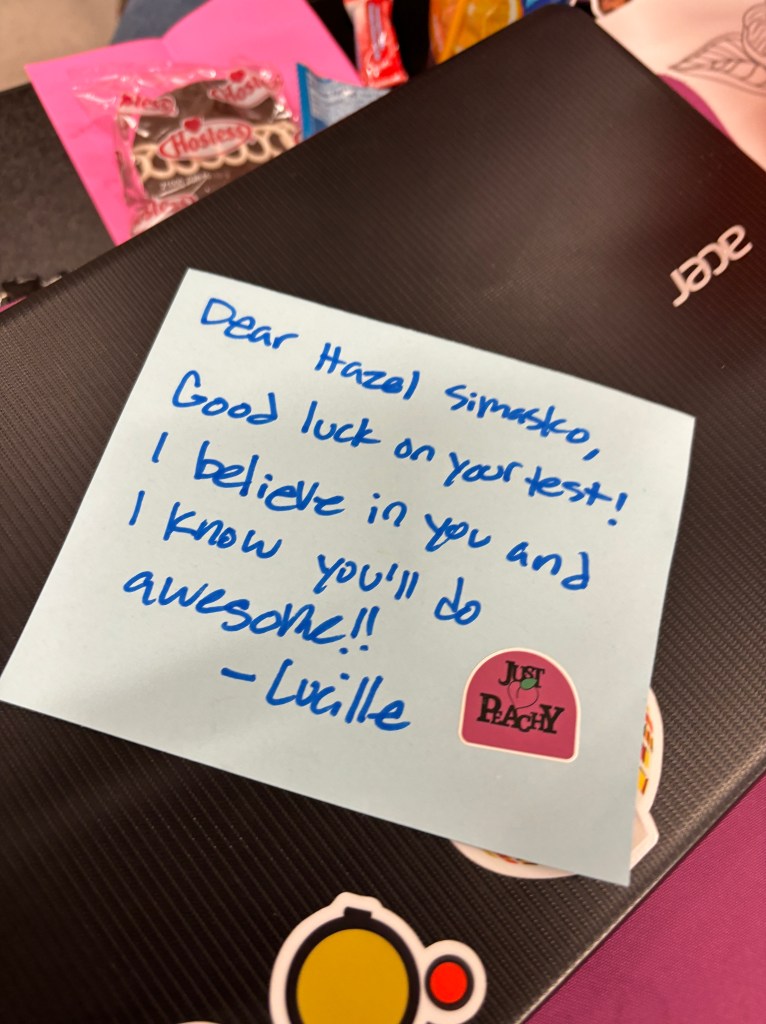 Hostess
Hostess
acer
Dear Hazel Simasko,
Good luck on your test!
I believe in you and
I know you'll do
awesome!!
- Lucille
JUST
PEACHY